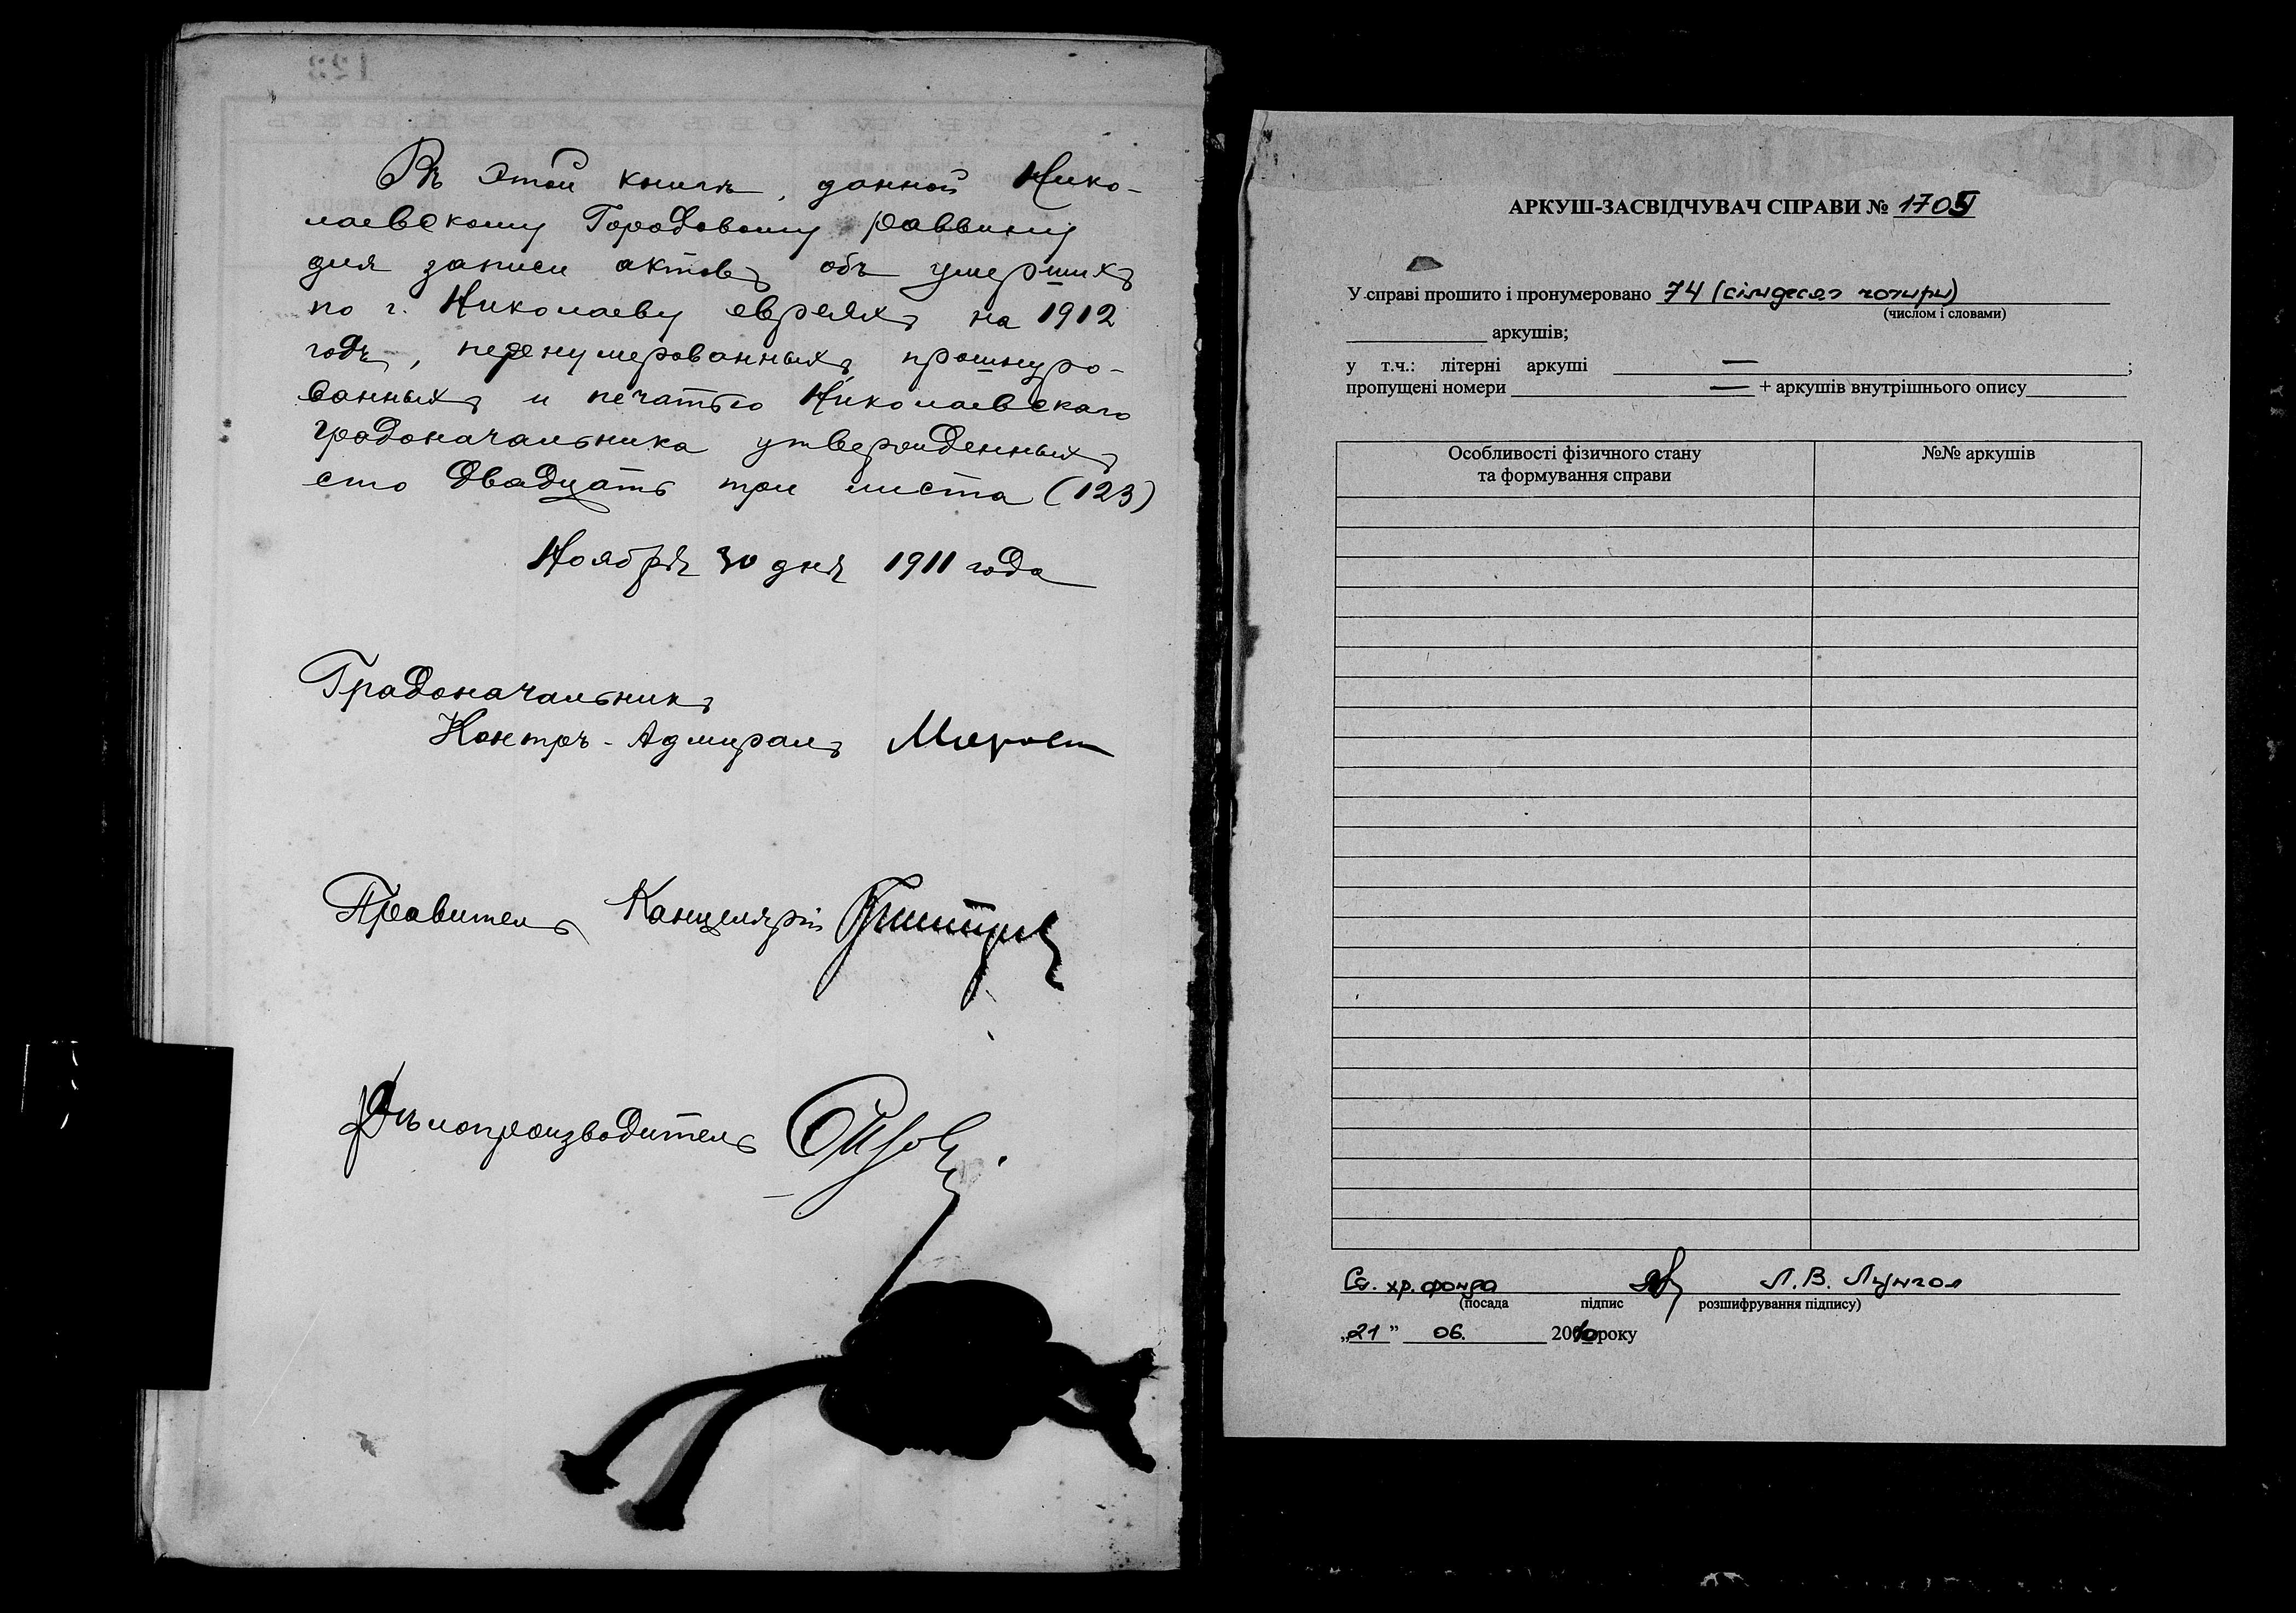 Въ этой книгѣ, данной Нико-
лаевскому Городовому раввину
для записи актовъ объ умершихъ
по г. Николаеву евреяхъ на 1912
годъ, перенумерованныхъ, прошнуро-
ванныхъ и печатью Николаевскаго
Градоначальника утвержденныхъ
сто двадцать три листа (123)
Ноября 30 дня 1911 года
Градоначальникъ
Контръ-Адмиралъ
Правитель Канцеляріи
Дѣлопроизводитель
123
АРКУШ-ЗАСВІДЧУВАЧ СПРАВИ № 1705
У справі прошито і пронумеровано 74 (сімдесят чотири)
(числом і словами)
аркушів;
у т.ч.: літерні аркуші — ;
пропущені номери — + аркушів внутрішнього опису
Особливості фізичного стану
та формування справи
№№ аркушів
Ст. хр. фонда Л.В.
(посада підпис розшифрування підпису)
„21” 06. 2010 року